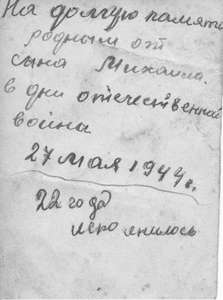 На долгую память
родным от
сына Михаила.
в дни отечественной
война
27 мая 1944 г.
22 года